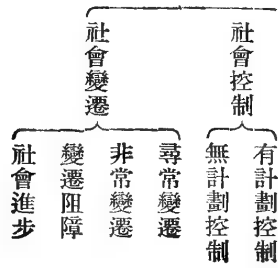 社會控制
有計劃控制
無計劃控制
社會變遷
尋常變遷
非常變遷
變遷阻障
社會進步